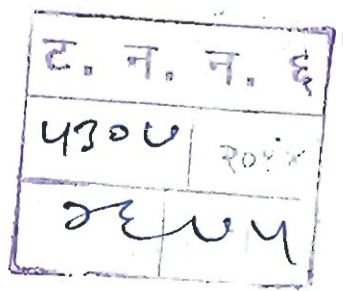 ट. न. न. ६
५३०७ २०१४
२६ ७५